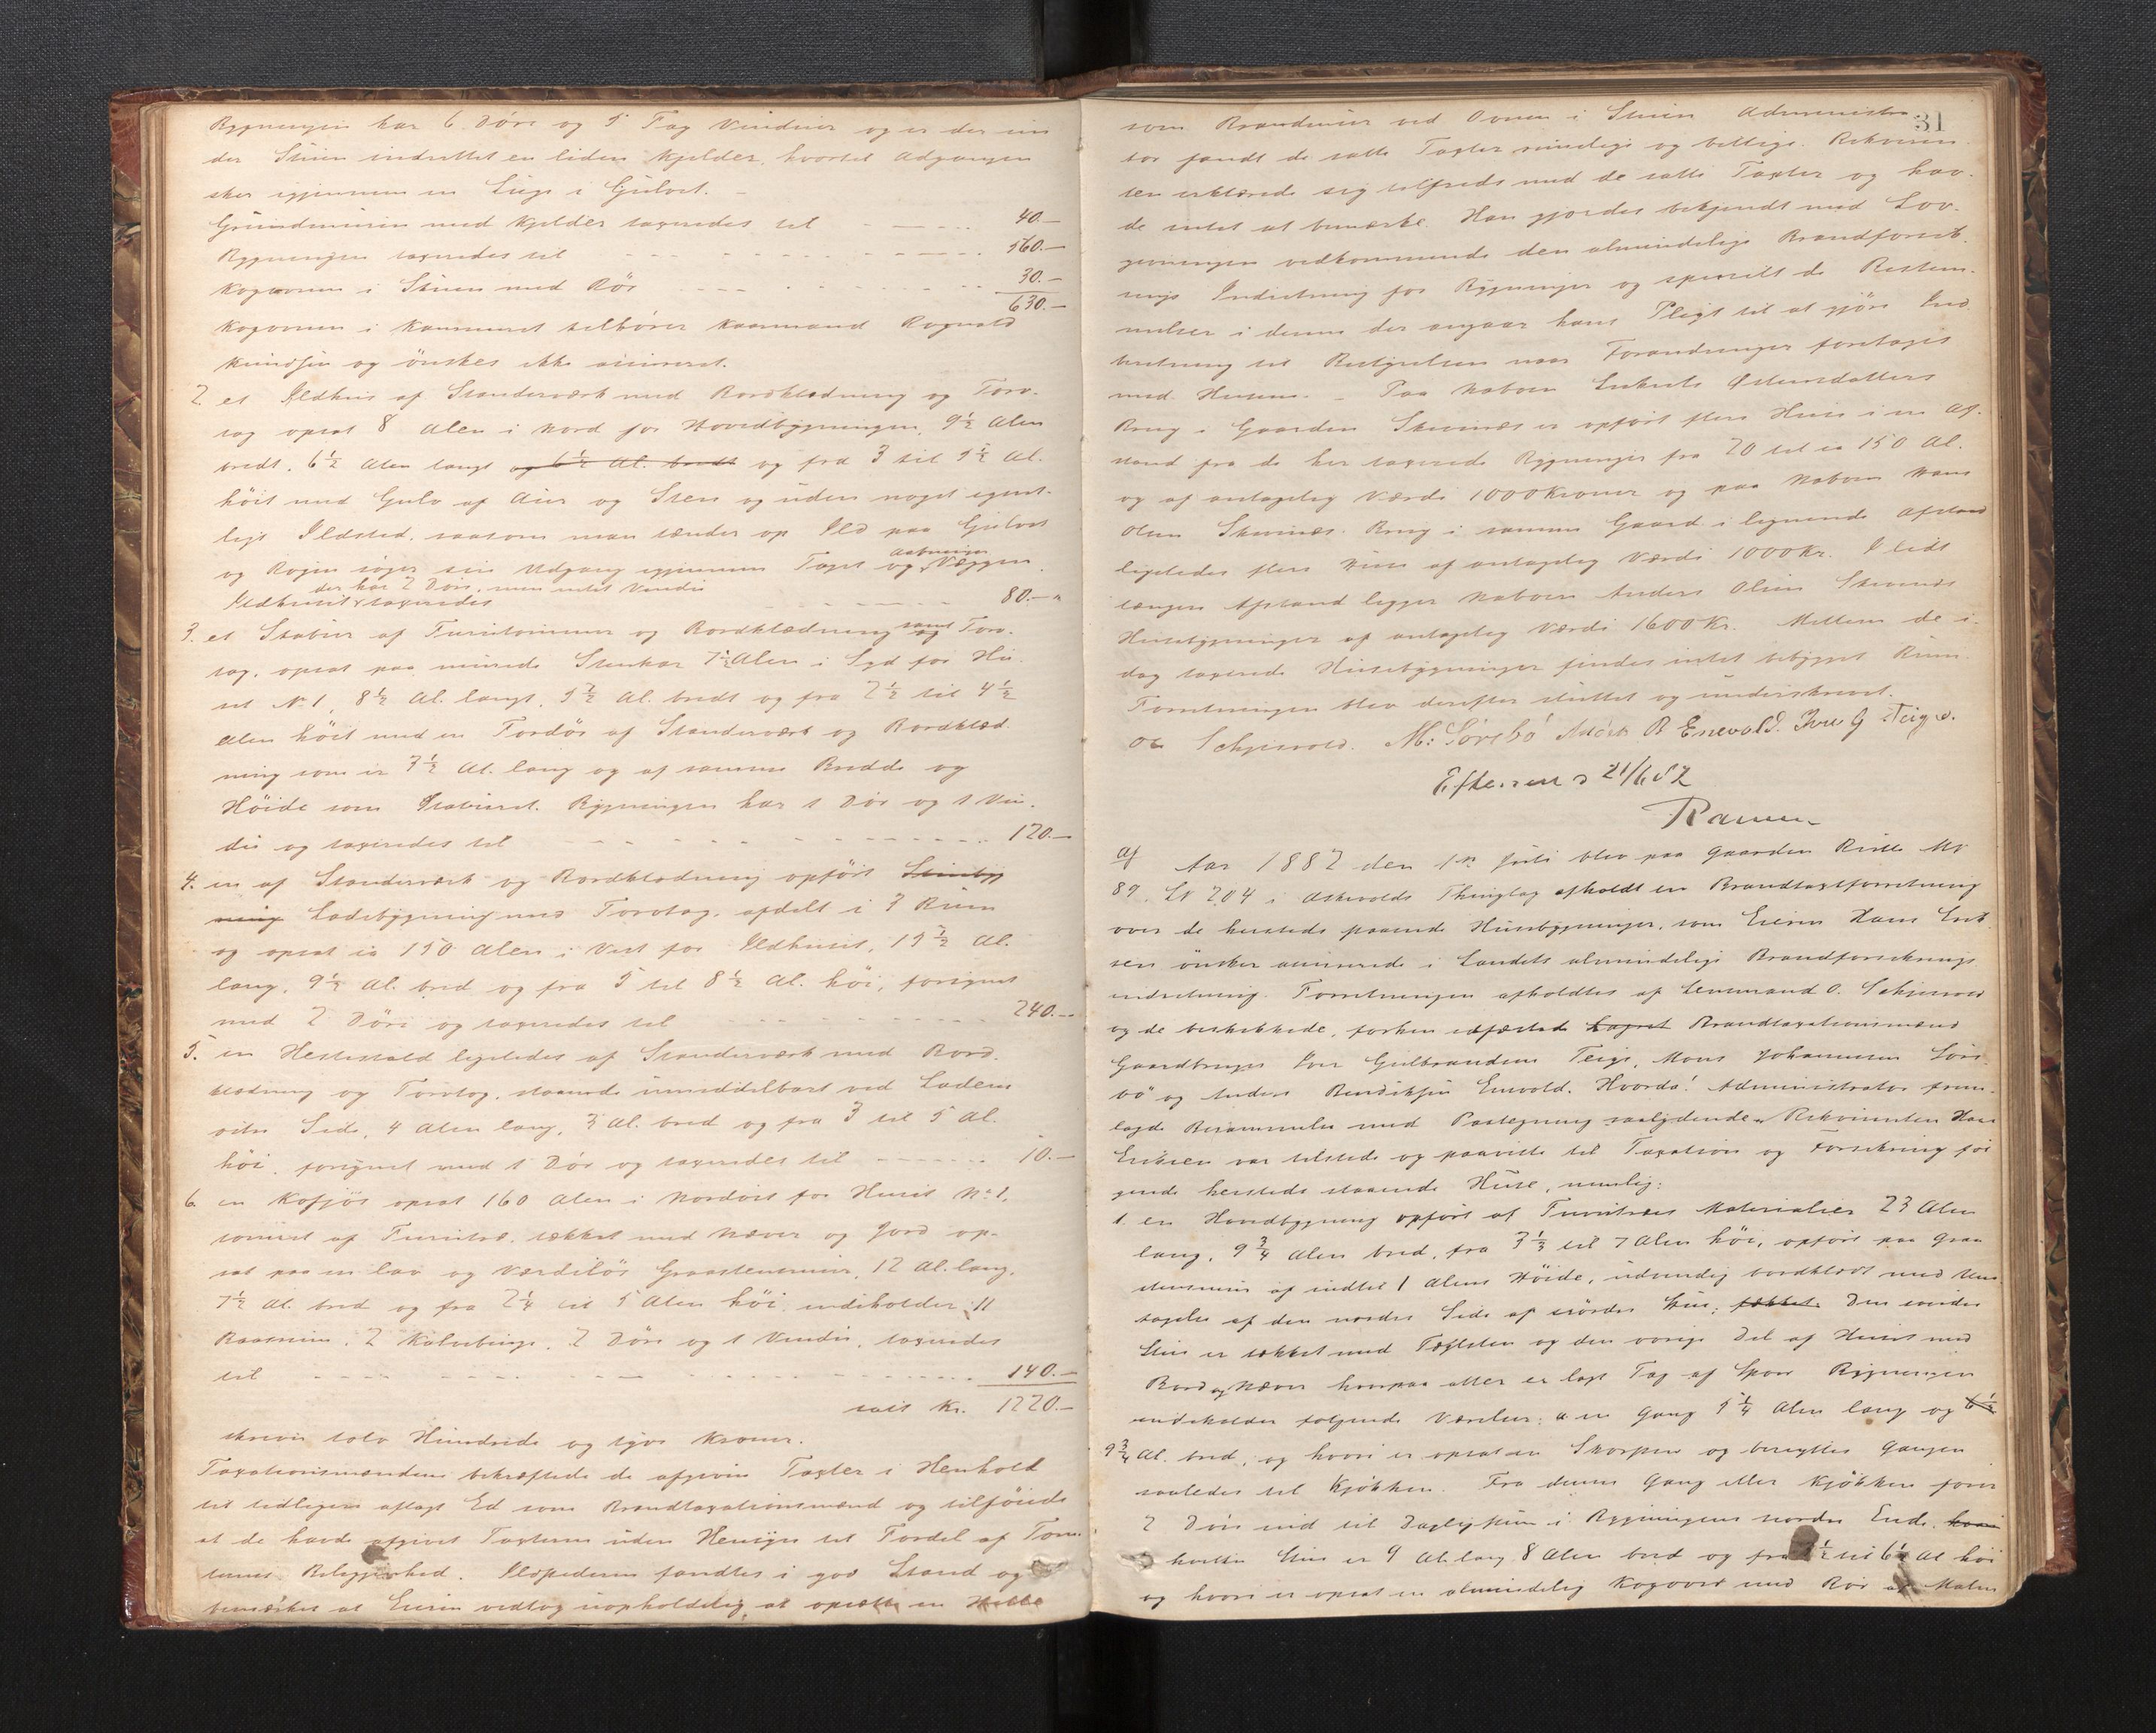 Bygningen har 6 Döre og 5 Fag Vinduer og er der un
der Stuen indrettet en liden Kjelder, hvortil Adgangen
sker igjennem en Luge i Gulvet. –
Grundmuren med Kjelder taxeredes til 40.–
Bygningen taxeredes til 560.–
Kogovnen i Stuen med Rör 30.–
630.–
Kogovnen i Kammeret tilhörer Kaarmand Rognald
Knudsen og önskes ikke assureret.
2. et Ildhus af Standerværk med Bordklædning og Torv-
tag opsat 8 Alen i Nord for Hovedbygningen, 9½ Alen
bredt, 6½ Alen langt og 6½ Al. bredt og fra 3 til 5½ Al.
höit med Gulv af Aur og Sten og uden noget egent-
ligt Ildsted, saasom man tænder op Ild paa Gulvet
og Rögen söger sin Udgang igjennem Taget og Aabninger Væggen.
Ildhuset der har 2 Döre, men intet Vindu taxeredes 80.– "
3. et Stabur af Furutömmer og Bordklædning samt og Torv-
tag, opsat paa murede Stenkar 7½ Alen i Syd for Hu-
set No 1, 8½ Al. langt, 5½ Al. bredt og fra 2½ til 4½
Alen höit med en Fordör af Standerværk og Bordklæd
ning som er 3½ Al. lang og af samme Bredde og
Höide som Staburet. Bygningen har 1 Dör og 1 Vin-
du og taxeredes til 120.–
4. en af Standerværk og Bordklædning opfört Stuebyg
ning Ladebygning med Torvtag, afdelt i 3 Rum
og opsat ca 150 Alen i Vest for Ildhuset, 15½ Al.
lang, 9½ Al. bred og fra 5 til 8½ Al. höi, forsynet
med 2 Döre og taxeredes til 240.–
5. en Hestestald ligeledes af Standerværk med Bord-
klædning og Torvtag, staaende umiddelbart ved Ladens
vstre Side, 4 Alen lang, 3 Al. bred og fra 3 til 5 Al.
höi, forsynet med 1 Dör og taxeredes til 10.–
6. en Kofjös opsat 160 Alen i Nordöst for Huset No 1,
tömret af Furutræ, tækket med Næver og Jord op-
sat paa en lav og værdilös Graastensmur, 12 Al. lang,
7½ Al. bred og fra 2¼ til 5 Alen höi, indeholder 11
Baasrum, 2 Kalvebinge, 2 Döre og 1 Vindu, taxeredes
til 140.–
tilst Kr. 1220.–
skriver tolv Hundrede og tyve Kroner.
Taxationsmændene bekræftede de afgivne Taxter i Henhold
til tidligere aflagt Ed som Brandtaxationsmænd og tilföiede
at de havde afgivet Taxterne uden Hensyn til Fordel af Tom-
ternes Beliggenhed. Ildstederne fandtes i god Stand og
bemærkes at Eieren vedtog uopholdelig at opsætte en Helle
31
som Brandmur ved Ovnen i Stuen Administra
tor fandt de satte Taxter rimelige og billige. Rekviren-
ten erklærede sig tilfreds med de satte Taxter og hav-
de intet at bemærke. Han gjordes bekjendt med Lov-
givningen vedkommende den almindelige Brandforsik-
rings Indretning for Bygninger og specielt de Bestem-
melser i denne der angaar hans Pligt til at gjöre Ind
beretning til Bestyrelsen naar Forandringer foretages
med Husene. – Paa Naboen Ostensdatters
Brug i Gaarden Skivenæs er opfört flere Huse i en Af-
stand fra de her taxerede Bygninger fra 20 til ca 150 Al.
og af antagelig Værdi 1000 Kroner og paa Naboen Hans
Olsen Skivenæs Brug i samme Gaard i lignende Afstand
ligeledes flere Huse af antagelig Værdi 1000 Kr. I lidt
længere Afstand ligger Naboen Anders Olsen Skivenæs
Husebygninger af antagelig Værdi 1600 Kr. Mellem de i-
dag taxerede Husebygninger findes intet bebygget Rum.
Forretningen blev derefter sluttet og underskrevet.
O. Schjervold. M: Sörebö Anders B Enevold. Iver G Teige.
Efterseet 21/6 82
Ramm
Af Aar 1882 den 1ste Juli blev paa Gaarden Risle Mt
89, Lt 204 i Askvolds Thinglag afholdt en Brandtaxtforretning
over de hersteds staaende Husebygninger, som Eieren Hans Erik
sen önsker assurerede i Landets almindelige Brandforsikrings
indretning. Forretningen afholdtes af Lensmand O. Schjervold
og de beskikkede, forhen edfæstede Lagret Brandtaxationsmænd
Gaardbruger Iver Gulbrandsen Teige, Mons Johannesen Söre
bö og Anders Bendiksen Enevold. Hvorda! Administrator frem-
lagde Berammelse med Paategning saalydende Rekvirenten Hans
Eriksen var tilstede og paaviste til Taxation og Forsikring föl
gende hersteds staaende Huse, nemlig:
1. en Hovedbygning opfört af Furutræs Materialier 23 Alen
lang, 9¾ Alen bred, fra 3⅓ til 7 Alen höi, opfört paa Graa
stensmur af indtil 1 Alens Höide, udvendig bordklædt med Und
tagelse af den nordre Side af nördre Stue; tækket. Den söndre
Stue er tækket med Tagsten og den övrige Del af Huset med
Bord og Næver hvorpaa atter er lagt Tag af Spon Bygningen
indeholder fölgende Værelser: a. en Gang 5¼ Alen lang og 6½
9¾ Al. bred, og hvori er opsat en Skorsten og benyttes Gangen
saaledes til Kjökken. Fra denne Gang eller Kjökken förer
2 Döre ind til Dagligstue i Bygningens nordre Ende, hvori
hvilken Stue er 9 Al. lang 8 Alen bred og fra ½ til 6½ Al höi
og hvori er opsat en almindelig Kogovn med Rör af Malm